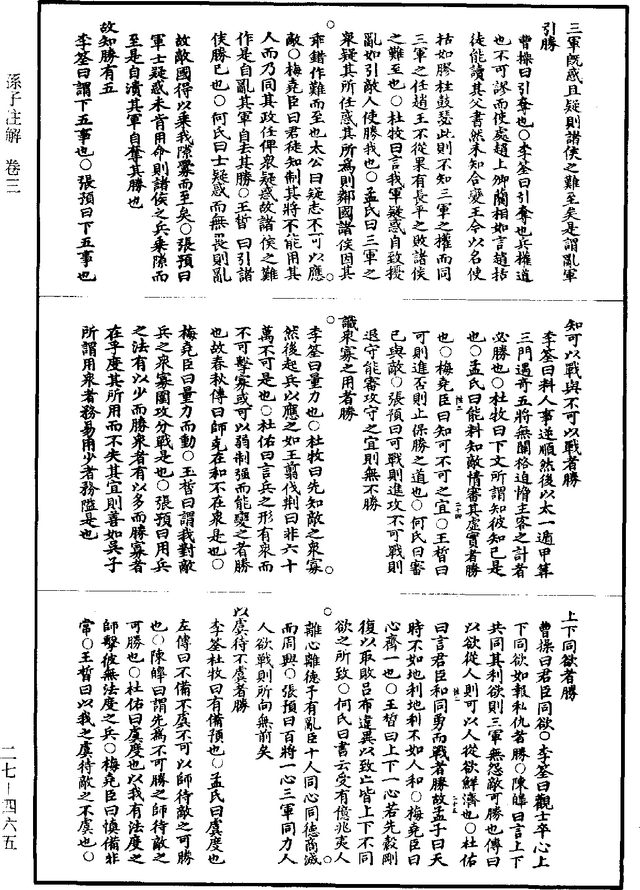 三軍既惑且疑則諸侯之難至矣是謂亂軍
引勝
曹操曰引奪也○李筌曰引奪也兵權道
也不可謬而使處趙上卿藺相如言趙括
徒能讀其父書然未知合變王今以名使
括如膠柱鼓瑟此則不知三軍之權而同
三軍之任趙王不從果有長平之敗諸侯
之難至也○杜牧曰言我軍疑惑自致擾
亂如引敵人使勝我也○孟氏曰三軍之
衆疑其所任惑其所為則鄰國諸侯因其
乖錯作難而至也太公曰疑志不可以應
敵○梅堯臣曰君徒知制其將不能用其
人而乃同其政任俾衆疑惑故諸侯之難
作是自亂其軍自去其勝○王晳曰引諸
侯勝己也○何氏曰士疑惑而無畏則亂
故敵國得以乘我隙釁而至矣○張預曰
軍士疑惑未肯用命則諸侯之兵乘隙而
至是自潰其軍自奪其勝也
故知勝有五
李筌曰謂下五事也○張預曰下五事也
知可以戰與不可以戰者勝
李筌曰料人事逆順然後以太一遁甲算
三門遇奇五將無關格迫愶主客之計者
必勝也○杜牧曰下文所謂知彼知己是
也○孟氏曰能料知敵情審其虛實者勝
也○梅堯臣曰知可不可之宜○王晳曰
可則進否則止保勝之道也○何氏曰審
己與敵○張預曰可戰則進攻不可戰則
退守能審攻守之宜則無不勝
識衆寡之用者勝
李筌曰量力也○杜牧曰先知敵之衆寡
然後起兵以應之如王翦伐荆曰非六十
萬不可是也○杜佑曰言兵之形有衆而
不可擊寡或可以弱制强而能變之者勝
也故春秋傳曰師克在和不在衆是也○
梅堯臣曰量力而動○王晳曰謂我對敵
兵之衆寡圍攻分戰是也○張預曰用兵
之法有以少而勝衆者有以多而勝寡者
在乎度其所用而不失其宜則善如吳子
所謂用衆者務易用少者務隘是也
上下同欲者勝
曹操曰君臣同欲○李筌曰觀士卒心上
下同欲如報私仇者勝○陳皥曰言上下
共同其利欲則三軍無怨敵可勝也傳曰
以欲從人則可以人從欲鮮濟也○杜佑
曰言君臣和同勇而戰者勝故孟子曰天
時不如地利地利不如人和○梅堯臣曰
心齊一也○王晳曰上下一心若先縠剛
愎以取敗呂布違異以致亡皆上下不同
欲之所致○何氏曰書云受有億兆夷人
離心離德予有亂臣十人同心同德商滅
而周興○張預曰百將一心三軍同力人
人欲戰則所向無前矣
以虞待不虞者勝
李筌杜牧曰有備預也○孟氏曰虞度也
左傳曰不備不虞不可以師待敵之可勝
也○陳皥曰謂先為不可勝之師待敵之
可勝也○杜佑曰虞度也以我有法度之
師擊彼無法度之兵○梅堯臣曰慎備非
常○王晳曰以我之虞待敵之不虞也○
孫子註解 卷三
二七—四六五